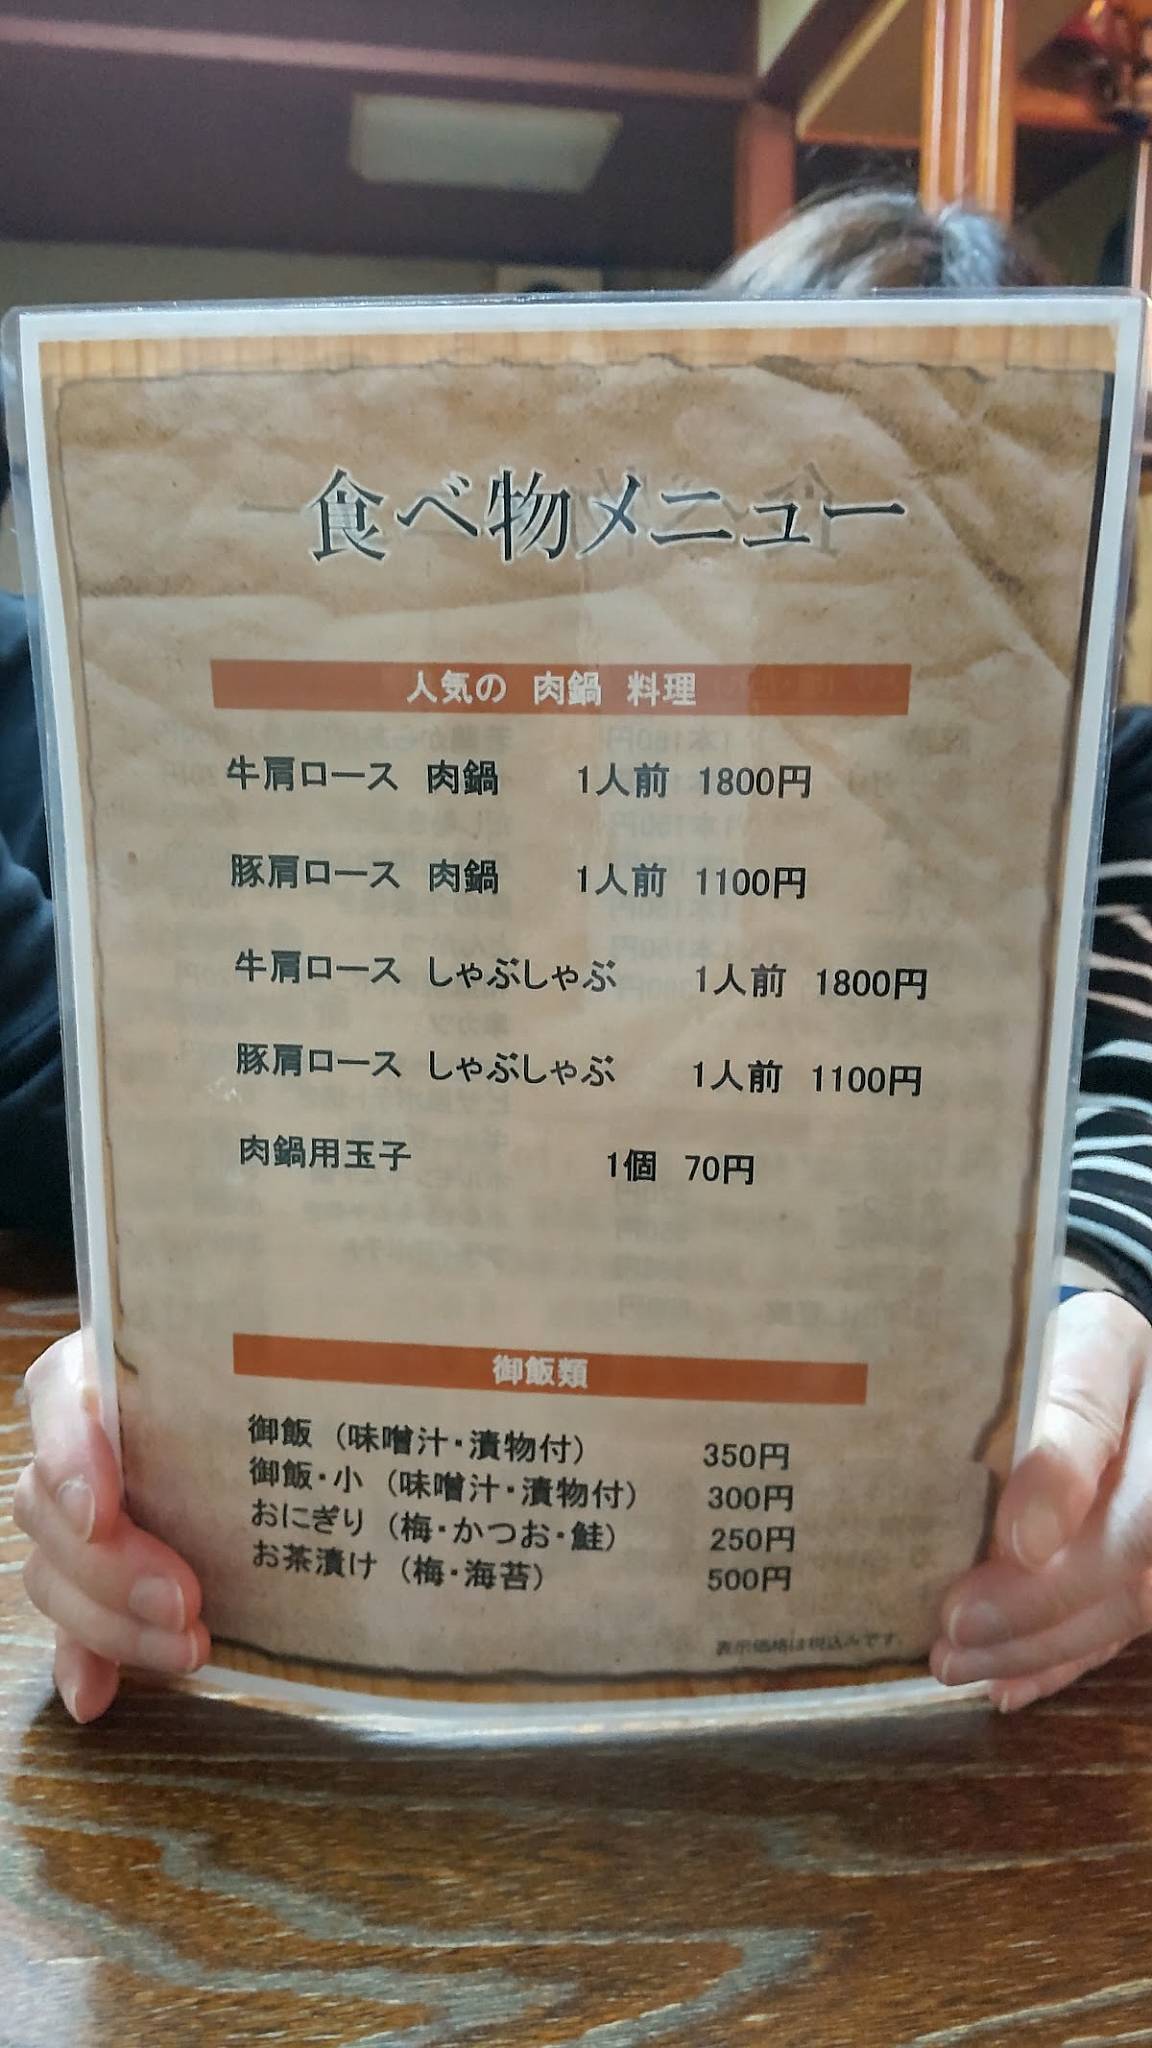 食べ物メニュー
人気の 肉鍋 料理
牛肩ロース 肉鍋 1人前 1800円
豚肩ロース 肉鍋 1人前 1100円
牛肩ロース しゃぶしゃぶ 1人前 1800円
豚肩ロース しゃぶしゃぶ 1人前 1100円
肉鍋用玉子 1個 70円
御飯類
御飯（味噌汁・漬物付） 350円
御飯・小（味噌汁・漬物付） 300円
おにぎり（梅・かつお・鮭） 250円
お茶漬け（梅・海苔） 500円
表示価格は税込みです。